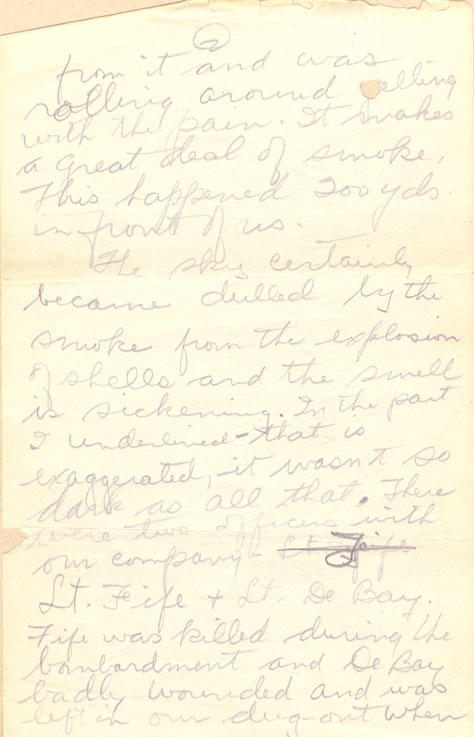 2
from it and was
rolling around yelling
with the pain. It makes
a great deal of smoke.
This happened 200 yds.
in front of us.
The sky certainly
became dulled by the
smoke from the explosion
of shells and the smell
is sickening. In the part
I underlined - that is
exaggerated, it wasn't so
dark as all that. There
were two officers with
our company - Lt. Fife
Lt. Fife + Lt. De Bay.
Fife was killed during the
bombardment and De Bay
badly wounded and was
left in our dug-out when